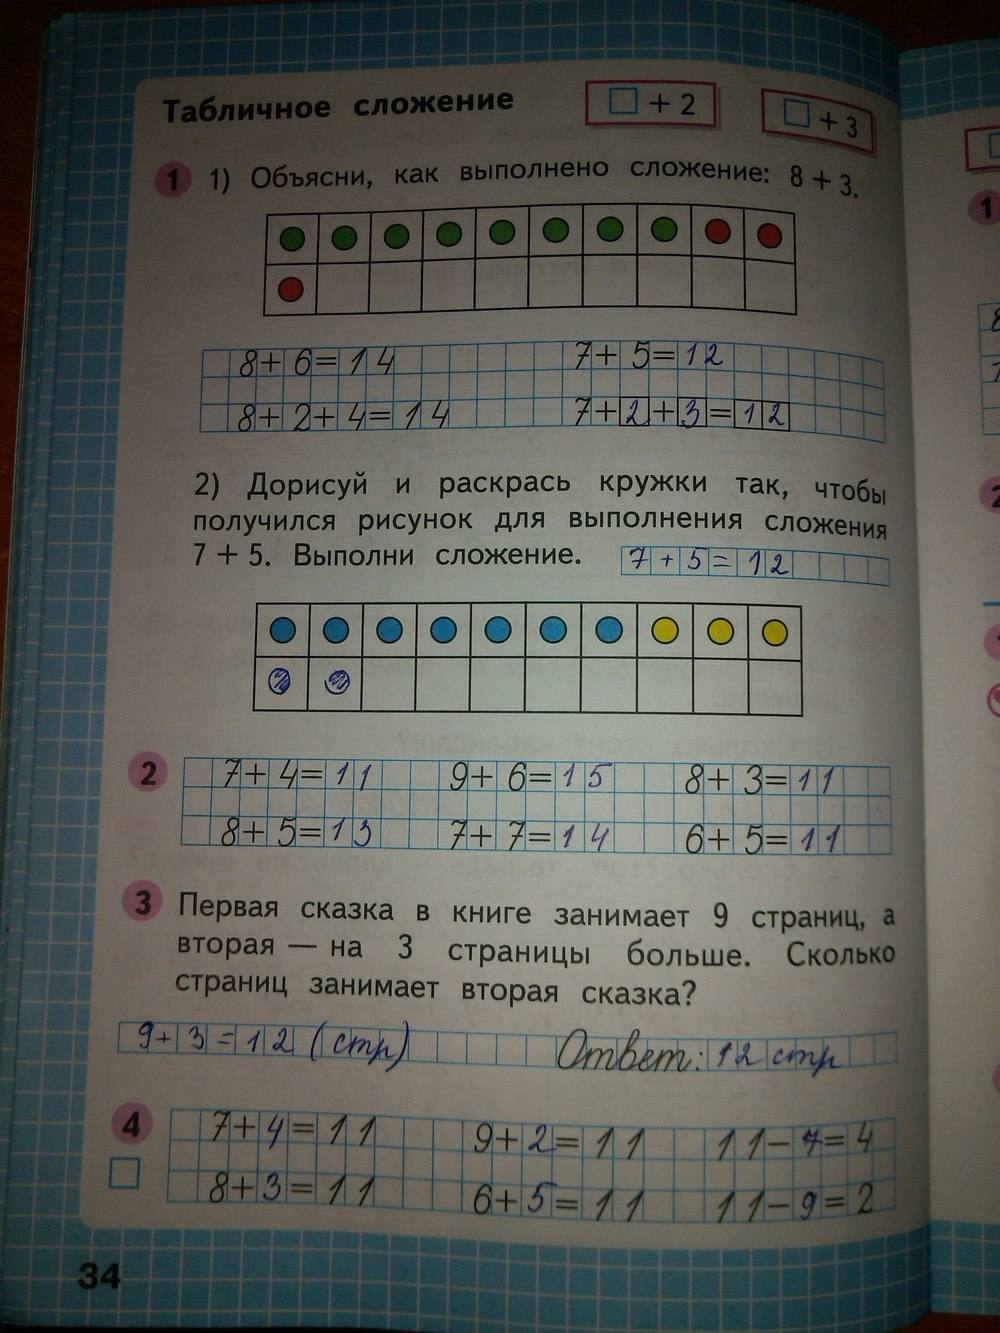 Табличное сложение □ + 2 □ + 3
1 1) Объясни, как выполнено сложение: 8 + 3.
8+6=14 7+5=12
8+2+4=14 7+2+3=12
2) Дорисуй и раскрась кружки так, чтобы
получился рисунок для выполнения сложения
7 + 5. Выполни сложение. 7+5=12
2 7+4=11 9+6=15 8+3=11
8+5=13 7+7=14 6+5=11
3 Первая сказка в книге занимает 9 страниц, а
вторая — на 3 страницы больше. Сколько
страниц занимает вторая сказка?
9+3=12 (стр) Ответ: 12 стр
4 7+4=11 9+2=11 11-7=4
8+3=11 6+5=11 11-9=2
34